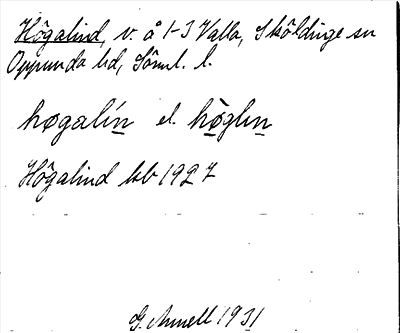 Högalind, v. å 1-3 Valla, Sköldinge sn
Oppunda hd, Söml. l.
høgalín el. hò̤glin
Högalind kb 1927
G. Annell 1931